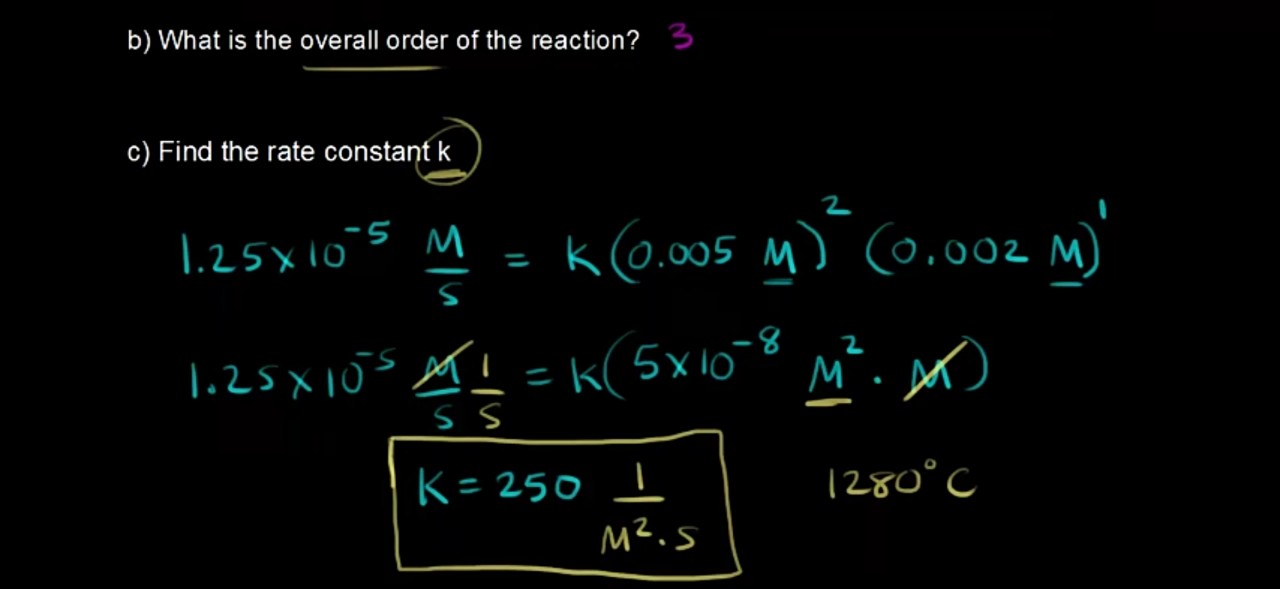 b) What is the overall order of the reaction? 3
c) Find the rate constant k
1.25x10⁻⁵ M/s = K(0.005 M)² (0.002 M)¹
1.25x10⁻⁵ M/s 1/s = K(5x10⁻⁸ M² · M)
K = 250 1/M²·s 1280°C